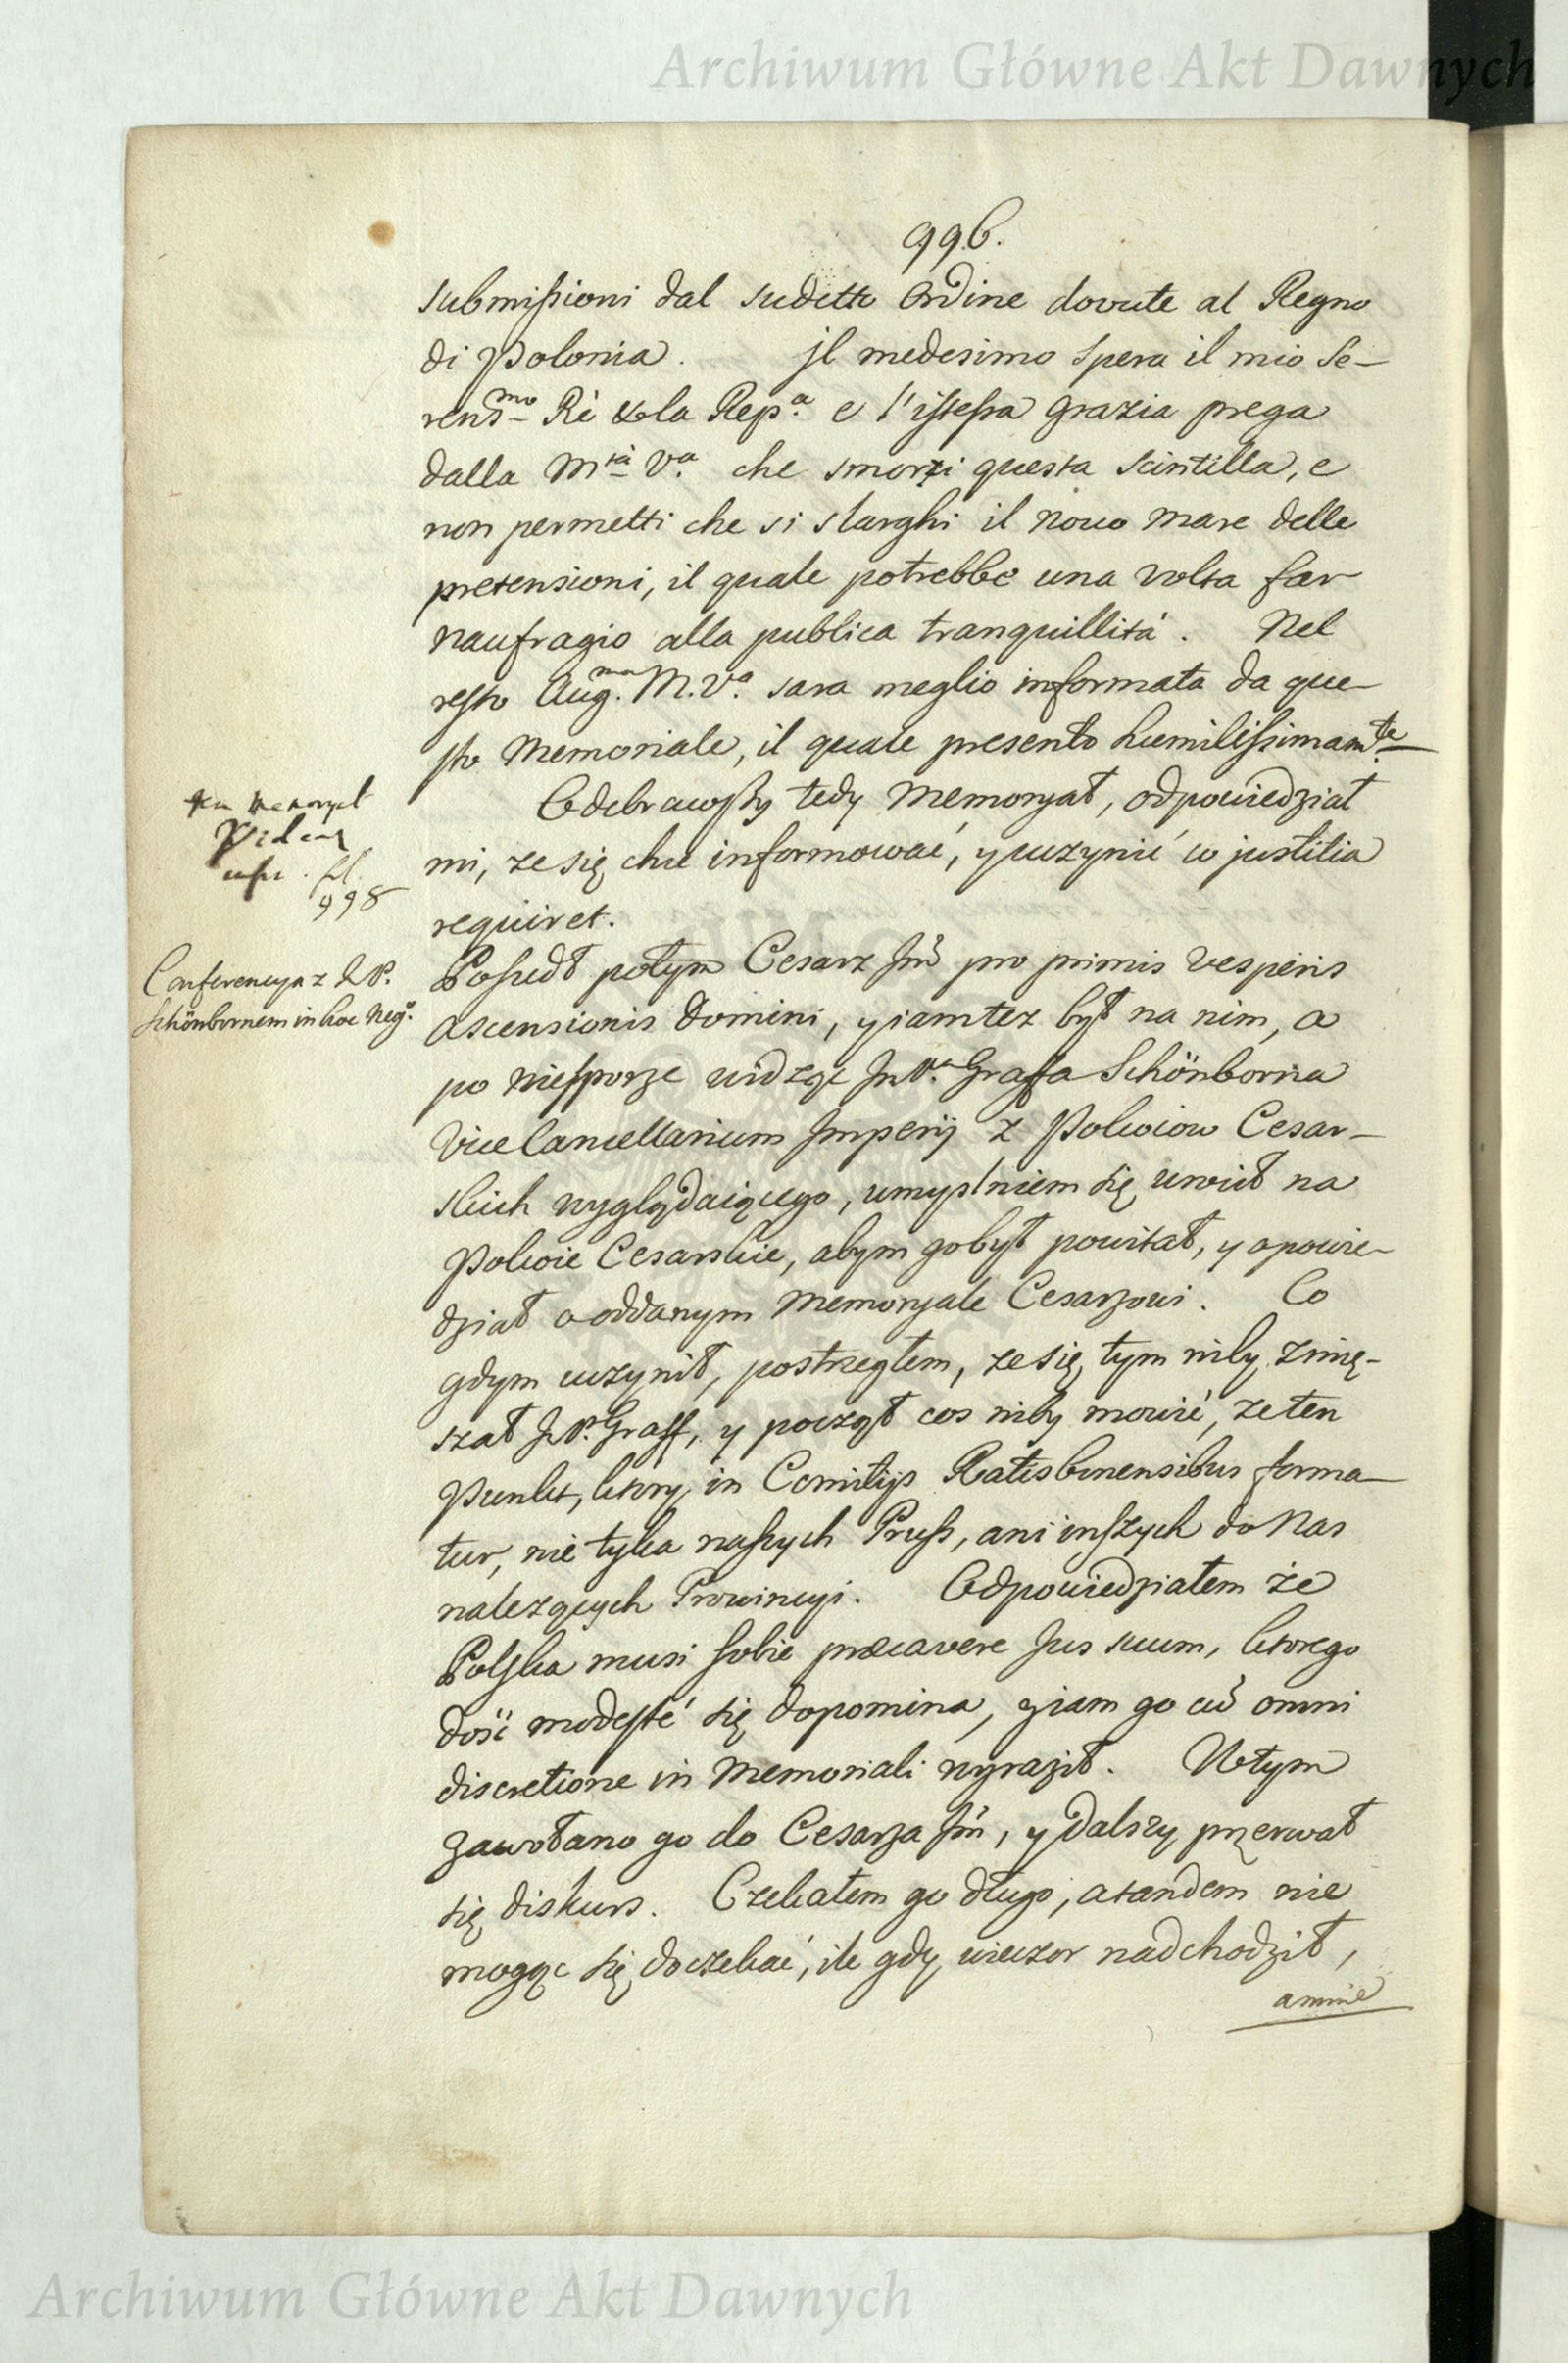 Archiwum Główne Akt Dawnych
996.
submissioni dal sudetto Ordine dovute al Regno
di Polonia. jl medesimo spera il mio Se-
renṡmo Rè &la Repa. e l'istessa grazia prega
dalla Mtà Va. che smorzi questa scintilla, e
non permetti che si slarghi il novo mare delle
pretensioni, il quale potrebbe una volta far
naufragio alla publica tranquillità. Nel
resto Aug.ma M.Va. sara meglio informata da que-
sto Memoriale, il quale presento humilissimamte.
Odebrawszy tedy Memoryał, odpowiedział
mi, ze się chce informować, y uczynić co justitia
requiret.
ten Memoryał
Videat
infr. fol.
998
Conferencya z J.P.
Schönbornem in hoc neg⁰.
Poszedł potym Cesarz Jm̃ pro primis Vesperis
Ascensionis Domini, y iamtez był na nim, a
po nieszporze widząc Jm P.a Graffa Schönborna
ViceCancellarium Imperij z Pokoiow Cesar-
skich wyglądaiącego, umyslniem się uwiił na
Pokoie Cesarskie, abym gobył powitał, y opowie-
dział o oddanym Memoryale Cesarzowi. Co
gdym uczynił, postrzegłem, ze się tym niby zmię-
szał J.P. Graff, y począł cos niby mowić, ze ten
Punkt, ktory in Comitijs Ratisbonensibus forma-
tur, nie tyka naszych Pruss, ani inszych do Nas
nalezących Prowincyi. Odpowiedziałem że
Polska musi sobie præcavere Jus suum, ktorego
dość modesté się dopomina, y iam go cũ omni
discretione in Memoriali wyraził. Wtym
zawołano go do Cesarza Jm̃, y dalszy przerwał
się diskurs. Czekałem go długo, a tandem nie
mogąc się doczekać, ile gdy wieczor nadchodził,
a mnie
Archiwum Główne Akt Dawnych